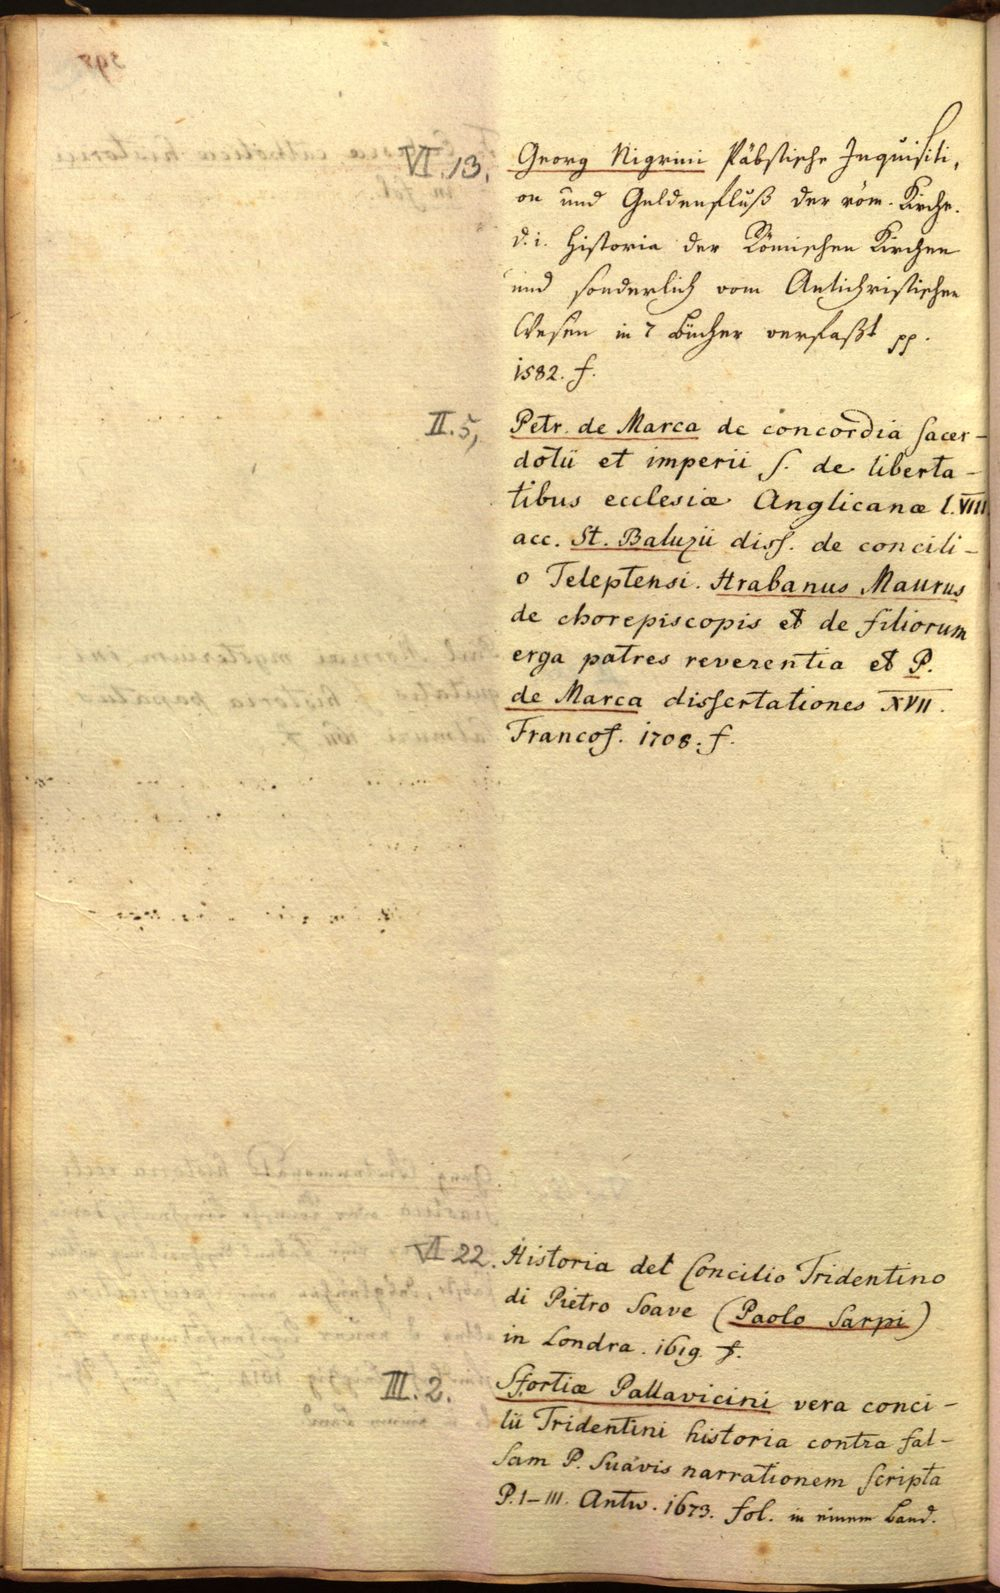 VI. 13. Georg Nigrini Päbstische Inquisiti,
on und Guldenfluß der röm. Kirche.
d. i. Historia der Römischen Kirchen
und sonderlich vom Antichristischen
Wesen in 7 Bücher verfaßt pp.
1582. f.
II. 5, Petr. de Marca de concordia sacer-
dotii et imperii s. de liberta-
tibus ecclesiæ Anglicanæ l. VIII
acc. St. Baluzii diss. de concili-
o Teleptensi. Hrabanus Maurus
de chorepiscopis et de filiorum
erga patres reverentia et P.
de Marca dissertationes XVII.
Francof. 1708. f.
VI 22. Historia del Concilio Tridentino
di Pietro Soave (Paolo Sarpi)
in Londra. 1619. f.
III. 2. Sfortiæ Pallavicini vera conci-
lii Tridentini historia contra fal-
sam P. Suavis narrationem scripta
P. I-III. Antw. 1673. fol. in einem Band.